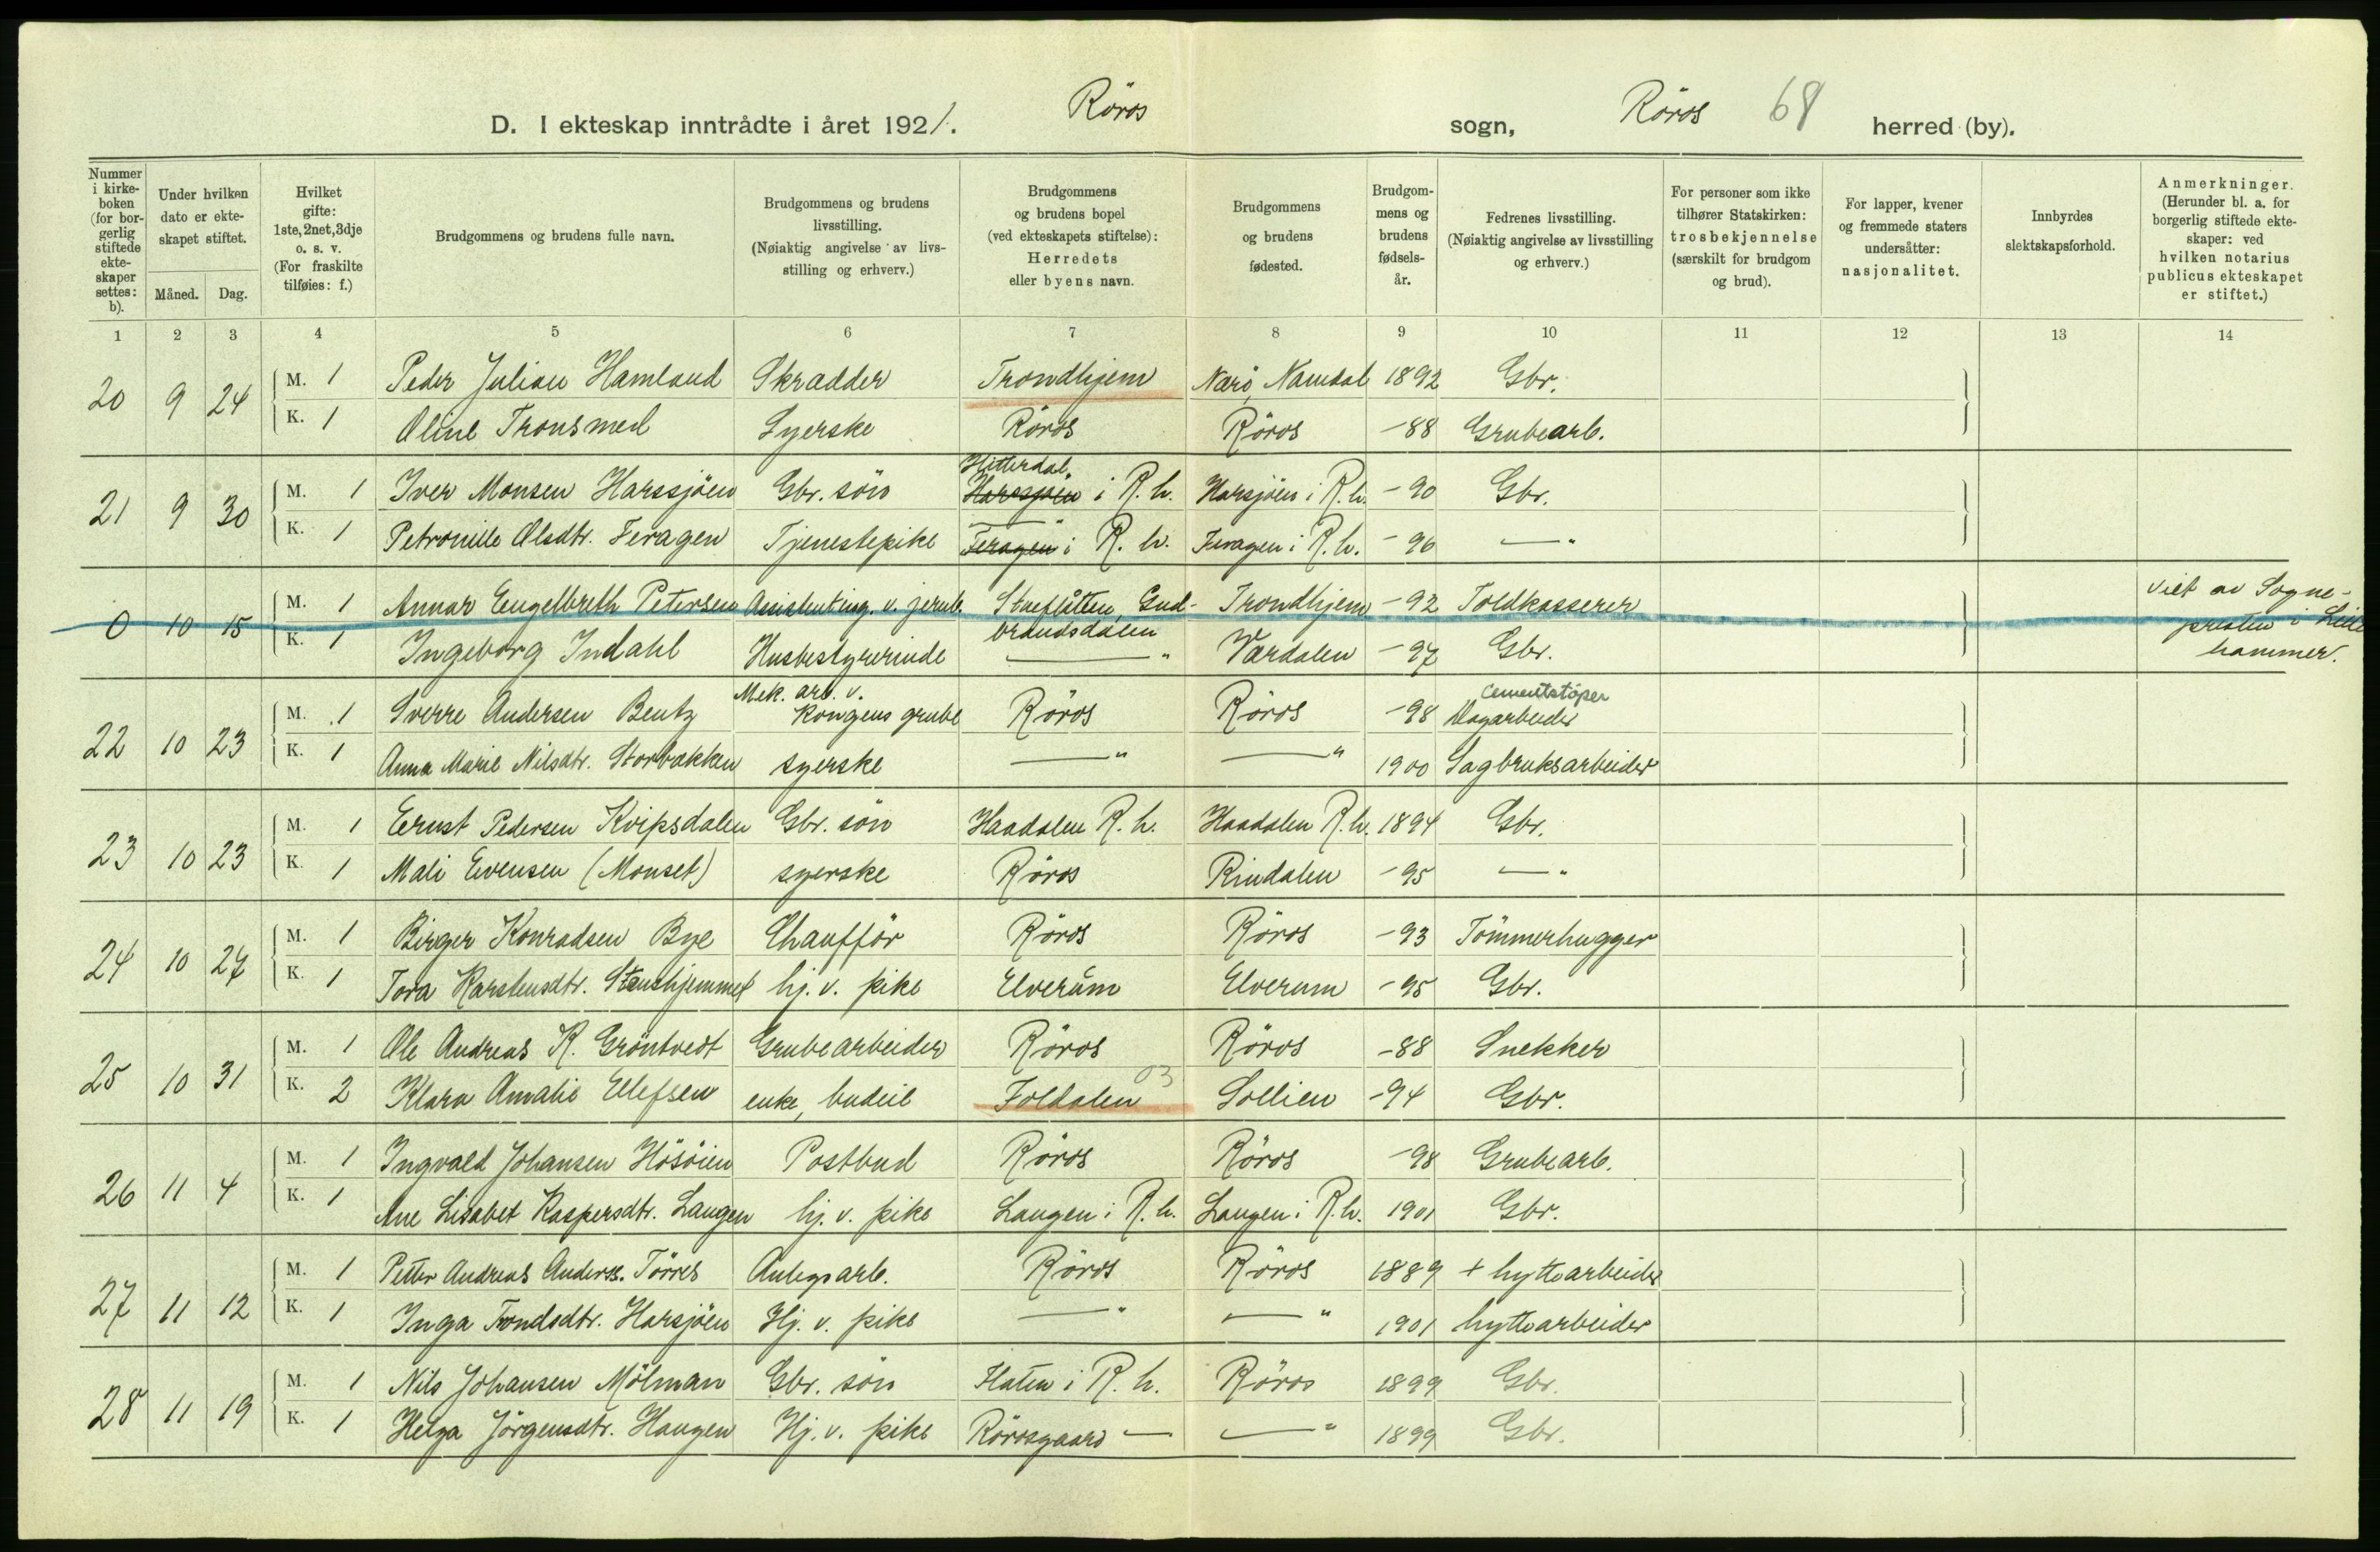 D. I ekteskap inntrådte i året 1921. Röros sogn, Röros 68 herred (by).
Nummer i kirkeboken (for borgerlig stiftede ekteskaper settes: b).
Under hvilken dato er ekteskapet stiftet.
Måned. Dag.
Hvilket gifte: 1ste, 2net, 3dje o. s. v. (For fraskilte tilføies: f.)
Brudgommens og brudens fulle navn.
Brudgommens og brudens livsstilling. (Nøiaktig angivelse av livsstilling og erhverv.)
Brudgommens og brudens bopel (ved ekteskapets stiftelse): Herredets eller byens navn.
Brudgommens og brudens fødested.
Brudgommens og brudens fødselsår.
Fedrenes livsstilling. (Nøiaktig angivelse av livsstilling og erhverv.)
For personer som ikke tilhører Statskirken: trosbekjennelse (særskilt for brudgom og brud).
For lapper, kvener og fremmede staters undersåtter: nasjonalitet.
Innbyrdes slektskapsforhold.
Anmerkninger. (Herunder bl. a. for borgerlig stiftede ekteskaper: ved hvilken notarius publicus ekteskapet er stiftet.)
1 2 3 4 5 6 7 8 9 10 11 12 13 14
20 9 24 M. 1 Peder Julian Hamland Skrædder Trondhjem Nærö, Namdal 1892 Gbr.
K. 1 Oline Tronsmed Syerske Röros Röros -88 Grubearb.
21 9 30 M. 1 Iver Monsen Harssjöen Gbr. sön Hitterdal Harssjöen i R. h. Harsjöen i R. h. -90 Gbr.
K. 1 Petronille Olsdtr. Feragen Tjenestepike Feragen i R. h. Feragen i R. h. -96 — "
0 10 15 M. 1 Annar Engelbreth Petersen Assistenting. v. jernb. Stueflåtten, Gud- Trondhjem -92 Toldkasserer Viet av Sogne-
K. 1 Ingeborg Indahl Husbestyrerinde brandsdalen — " Værdalen -97 Gbr. presten i Lille
hammer.
22 10 23 M. 1 Sverre Andersen Bentz Mek. arb. v. Kongens grube Röros Röros -98 cementstöper Dagarbeider
K. 1 Anna Marie Nilsdtr. Storbakken syerske — " — " 1900 Sagbruksarbeider
23 10 23 M. 1 Ernst Pedersen Kvipsdalen Gbr. sön Haadalen R. h. Haadalen R. h. 1894 Gbr.
K. 1 Mali Evensen (Monset) syerske Röros Rindalen -95 — "
24 10 27 M. 1 Birger Konradsen Bye Chafför Röros Röros -93 Tömmerhugger
K. 1 Tora Karstensdtr. Stenshjemmet hj. v. pike Elverum Elverum -95 Gbr.
25 10 31 M. 1 Ole Andreas K. Gröntvedt Grubearbeider Röros Röros -88 Snekker
K. 2 Klara Amalie Ellefsen enke, budeie Foldalen 03 Sollien -94 Gbr.
26 11 4 M. 1 Ingvald Johansen Hösöien Postbud Röros Röros -98 Grubearb.
K. 1 Ane Lisabet Kaspersdtr. Langen hj. v. pike Langen i R. h. Langen i R. h. 1901 Gbr.
27 11 12 M. 1 Petter Andreas Anders. Törres Anlegsarb. Röros Röros 1889 + hyttearbeider
K. 1 Inga Trondsdtr. Harsjöen Hj. v. pike — " — " 1901 hyttearbeider
28 11 19 M. 1 Nils Johansen Mölman Gbr. sön Flaten i R. h. Röros 1899 Gbr.
K. 1 Helga Jörgensdtr. Haugen Hj. v. pike Rörosgaard — — " 1899 Gbr.